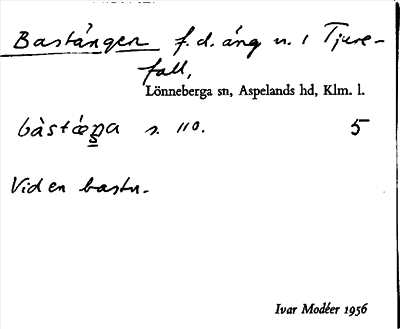 Bastängen f.d. äng n. 1 Tjure-
fall,
Lönneberga sn, Aspelands hd, Klm. l.
s. 110. 5
Vid en bastu.
Ivar Modéer 1956